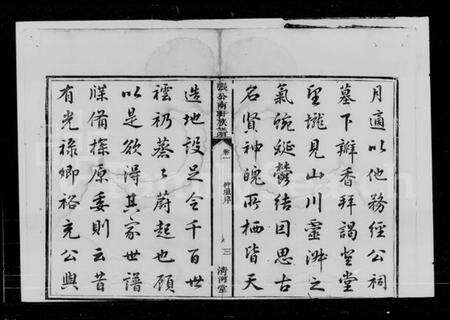 月適以他務經公祠
墓下瓣香拜謁登堂
望壠見山川靈淑之
氣蜿蜒鬱結因思古
名賢神魄所栖皆天
張公南軒族譜
卷一
仲選序
三
清河堂
造地設是令千百世
雲礽蒸蒸蔚起也顧
以是欲得其家世譜
牒備探原委則云昔
有光祿卿裕充公與